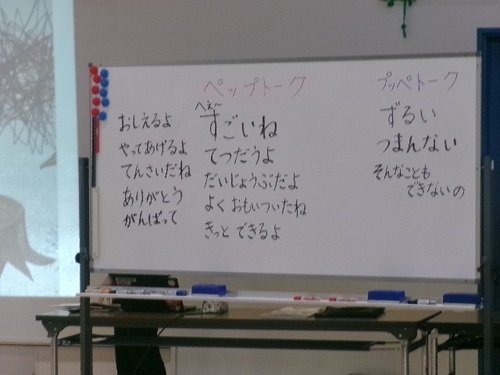 ペップトーク
へぇ〜
すごいね
てつだうよ
だいじょうぶだよ
よく おもいついたね
きっと できるよ
おしえるよ
やってあげるよ
てんさいだね
ありがとう
がんばって
プッペトーク
ずるい
つまんない
そんなことも
できないの